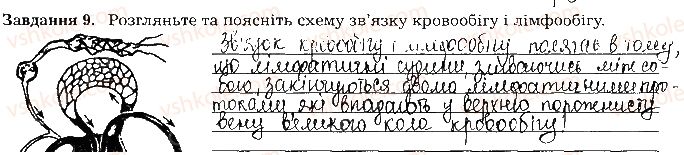 Завдання 9. Розгляньте та поясніть схему зв'язку кровообігу і лімфообігу.
Зв'язок кровообігу і лімфообігу полягає в тому,
що лімфатичні судини, зливаючись між со-
бою, закінчуються двома лімфатичними про-
токами, які впадають у верхню порожнисту
вену великого кола кровообігу!